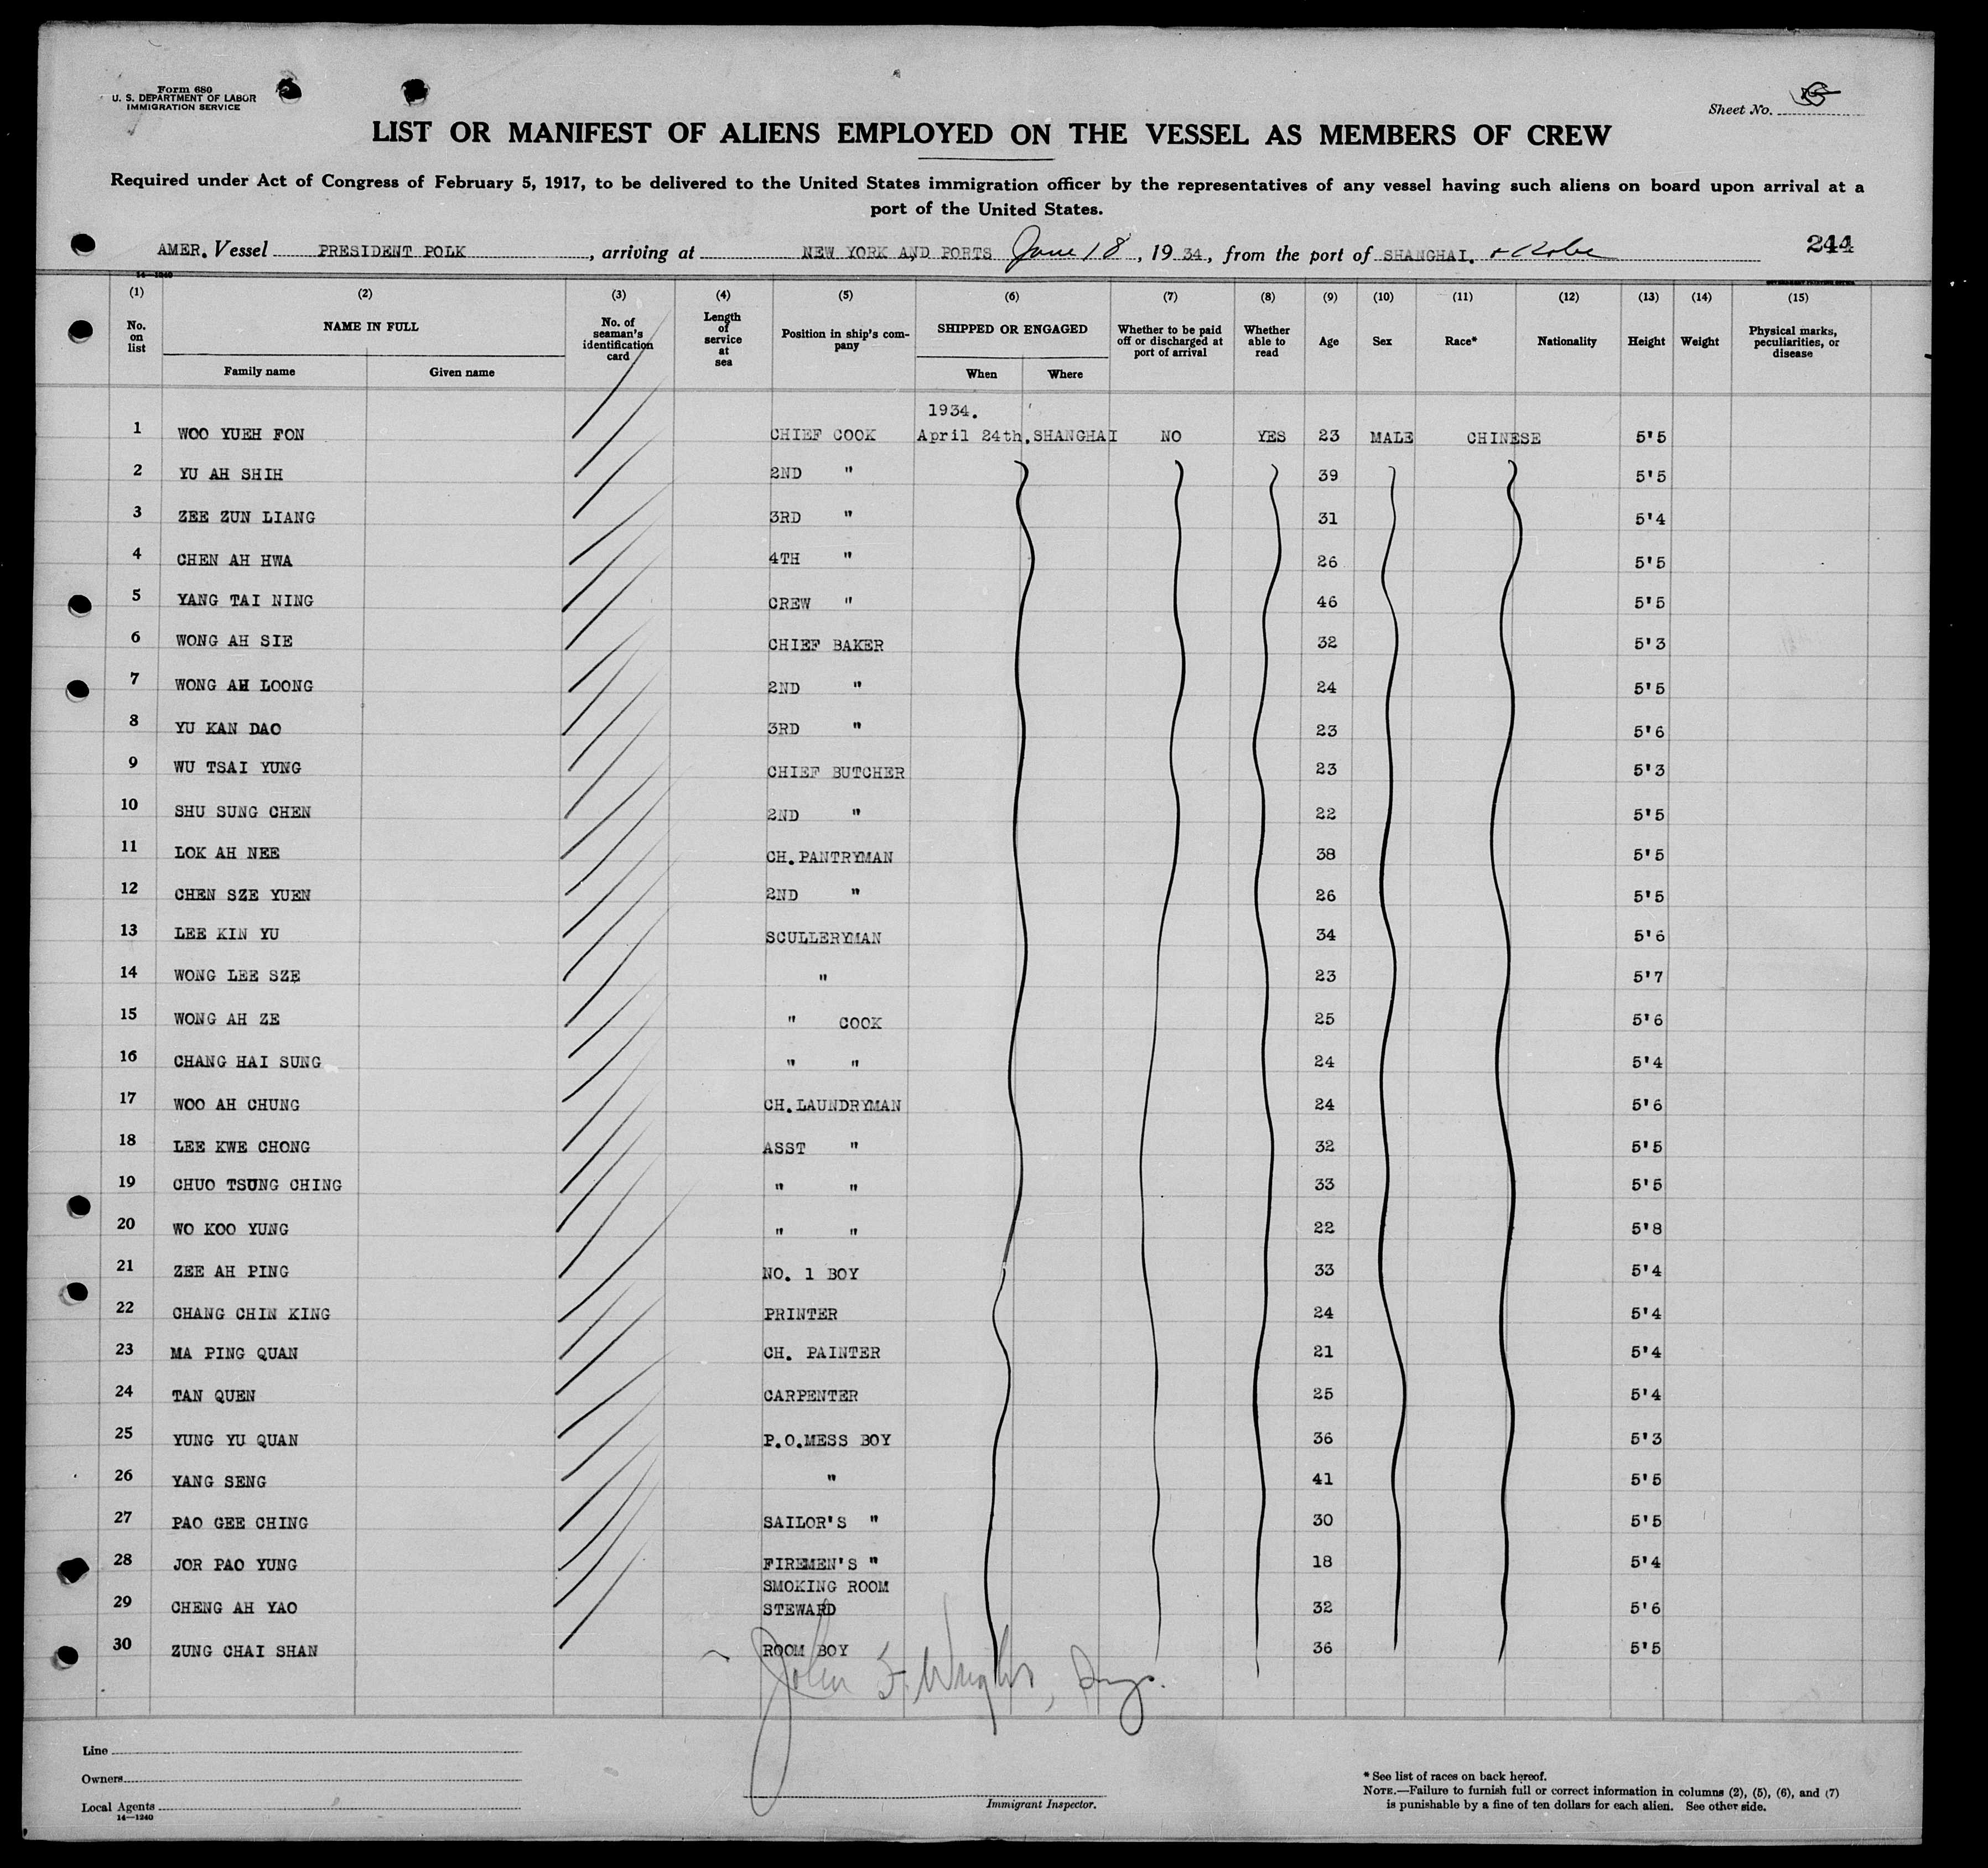 Form 680
U. S. DEPARTMENT OF LABOR
IMMIGRATION SERVICE
Sheet No.
LIST OR MANIFEST OF ALIENS EMPLOYED ON THE VESSEL AS MEMBERS OF CREW
Required under Act of Congress of February 5, 1917, to be delivered to the United States immigration officer by the representatives of any vessel having such aliens on board upon arrival at a
port of the United States.
AMER. Vessel PRESIDENT POLK, arriving at NEW YORK AND PORTS June 18, 1934, from the port of SHANGHAI. + Kobe 244
14—1240
(1) (2) (3) (4) (5) (6) (7) (8) (9) (10) (11) (12) (13) (14) (15)
No. on list NAME IN FULL No. of seaman's identification card Length of service at sea Position in ship's company SHIPPED OR ENGAGED Whether to be paid off or discharged at port of arrival Whether able to read Age Sex Race* Nationality Height Weight Physical marks, peculiarities, or disease
Family name Given name When Where
1934.
1 WOO YUEH FON CHIEF COOK April 24th. SHANGHAI NO YES 23 MALE CHINESE 5'5
2 YU AH SHIH 2ND " 39 5'5
3 ZEE ZUN LIANG 3RD " 31 5'4
4 CHEN AH HWA 4TH " 26 5'5
5 YANG TAI NING CREW " 46 5'5
6 WONG AH SIE CHIEF BAKER 32 5'3
7 WONG AH LOONG 2ND " 24 5'5
8 YU KAN DAO 3RD " 23 5'6
9 WU TSAI YUNG CHIEF BUTCHER 23 5'3
10 SHU SUNG CHEN 2ND " 22 5'5
11 LOK AH NEE CH. PANTRYMAN 38 5'5
12 CHEN SZE YUEN 2ND " 26 5'5
13 LEE KIN YU SCULLERYMAN 34 5'6
14 WONG LEE SZE " 23 5'7
15 WONG AH ZE " COOK 25 5'6
16 CHANG HAI SUNG " " 24 5'4
17 WOO AH CHUNG CH. LAUNDRYMAN 24 5'6
18 LEE KWE CHONG ASST " 32 5'5
19 CHUO TSUNG CHING " " 33 5'5
20 WO KOO YUNG " " 22 5'8
21 ZEE AH PING NO. 1 BOY 33 5'4
22 CHANG CHIN KING PRINTER 24 5'4
23 MA PING QUAN CH. PAINTER 21 5'4
24 TAN QUEN CARPENTER 25 5'4
25 YUNG YU QUAN P.O.MESS BOY 36 5'3
26 YANG SENG " 41 5'5
27 PAO GEE CHING SAILOR'S " 30 5'5
28 JOR PAO YUNG FIREMEN'S " 18 5'4
SMOKING ROOM
29 CHENG AH YAO STEWARD 32 5'6
30 ZUNG CHAI SHAN ROOM BOY 36 5'5
John F. Wright,
Line
Owners
Local Agents
14—1240
Immigrant Inspector.
* See list of races on back hereof.
NOTE.—Failure to furnish full or correct information in columns (2), (5), (6), and (7)
is punishable by a fine of ten dollars for each alien. See other side.